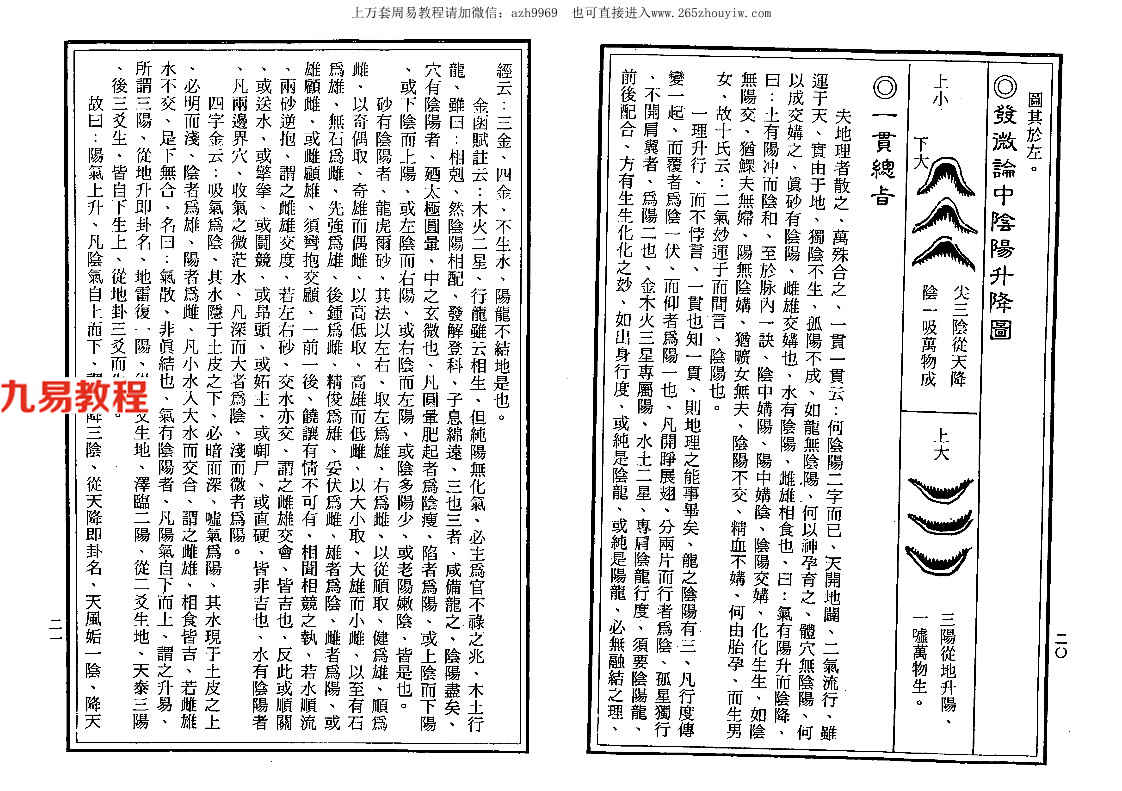 上万套周易教程请加微信：azh9969　也可直接进入www.265zhouyiw.com
圖其於左。
◎發微論中陰陽升降圖
上小
下大
尖三陰從天降
陰一吸萬物成
上大
三陽從地升陽、
一噓萬物生。
◎一貫總旨
夫地理者散之、萬殊合之、一貫一貫云：何陰陽二字而已、天開地闢、二氣流行、雖
運于天、實由于地、獨陰不生、孤陽不成、如龍無陰陽、何以神孕育之、體穴無陰陽、何
以成交媾之、眞砂有陰陽、雌雄交媾也、水有陰陽、雌雄相食也、曰：氣有陽升而陰降、
曰：土有陽冲而陰和、至於脉內一訣、陰中媾陽、陽中媾陰、陰陽交媾、化化生生、如陰
無陽交、猶鰥夫無婦、陽無陰媾、猶曠女無夫、陰陽不交、精血不媾、何由胎孕、而生男
女、故卜氏云：二氣妙運于而間言、陰陽也。
一理升行、而不悖言、一貫也知一貫、則地理之能事畢矣、龍之陰陽有三、凡行度傳
變一起、而覆者爲陰一伏、而仰者爲陽一也、凡開睜展翅、分兩片而行者爲陰、孤星獨行
、不開肩翼者、爲陽二也、金木火三星專屬陽、水土二星、專肩陰龍行度、須要陰陽龍、
前後配合、方有生生化化之妙、如出身行度、或純是陰龍、或純是陽龍、必無融結之理、
二〇
經云：三金、四金、不生水、陽龍不結地是也。
金函賦註云：木火二星、行龍雖云相生、但純陽無化氣、必主爲官不祿之兆、木土行
龍、雖曰：相剋、然陰陽相配、發解登科、子息綿遠、三也三者、咸備龍之、陰陽盡矣、
穴有陰陽者、廼太極圓暈、中之玄微也、凡圓暈肥起者爲陰瘦、陷者爲陽、或上陰而下陽
、或下陰而上陽、或左陰而右陽、或右陰而左陽、或陰多陽少、或老陽嫩陰、皆是也。
砂有陰陽者、龍虎爾砂、其法以左右、取左爲雄、右爲雌、以從順取、健爲雄、順爲
雌、以奇偶取、奇雄而偶雌、以高低取、高雄而低雌、以大小取、大雄而小雌、以至有石
爲雄、無石爲雌、先強爲雄、後鍾爲雌、精俊爲雄、妥伏爲雌、雄者爲陰、雌者爲陽、或
雄顧雌、或雌顧雄、須彎抱交顧、一前一後、饒讓有情不可有、相鬪相競之執、若水順流
、兩砂逆抱、謂之雌雄交度、若左右砂、交水亦交、謂之雌雄交會、皆吉也、反此或順關
、或送水、或擎拳、或鬪競、或昂頭、或妬主、或啣尸、或直硬、皆非吉也、水有陰陽者
、凡兩邊界穴、收氣之微茫水、凡深而大者爲陰、淺而微者爲陽。
四字金云：吸氣爲陰、其水隱于土皮之下、必暗而深、噓氣爲陽、其水現于土皮之上
、必明而淺、陰者爲雄、陽者爲雌、凡小水入大水而交合、謂之雌雄、相食皆吉、若雌雄
水不交、是下無合、名曰：氣散、非眞結也、氣有陰陽者、凡陽氣自下而上、謂之升易、
所謂三陽、從地升即卦名、地雷復一陽、從爻生地、澤臨二陽、從二爻生地、天泰三陽
、後三爻生、皆自下生上、從地卦三爻而生。
故曰：陽氣上升、凡陰氣自上而下、降三陰、從天降即卦名、天風姤一陰、降天
二一
九易教程